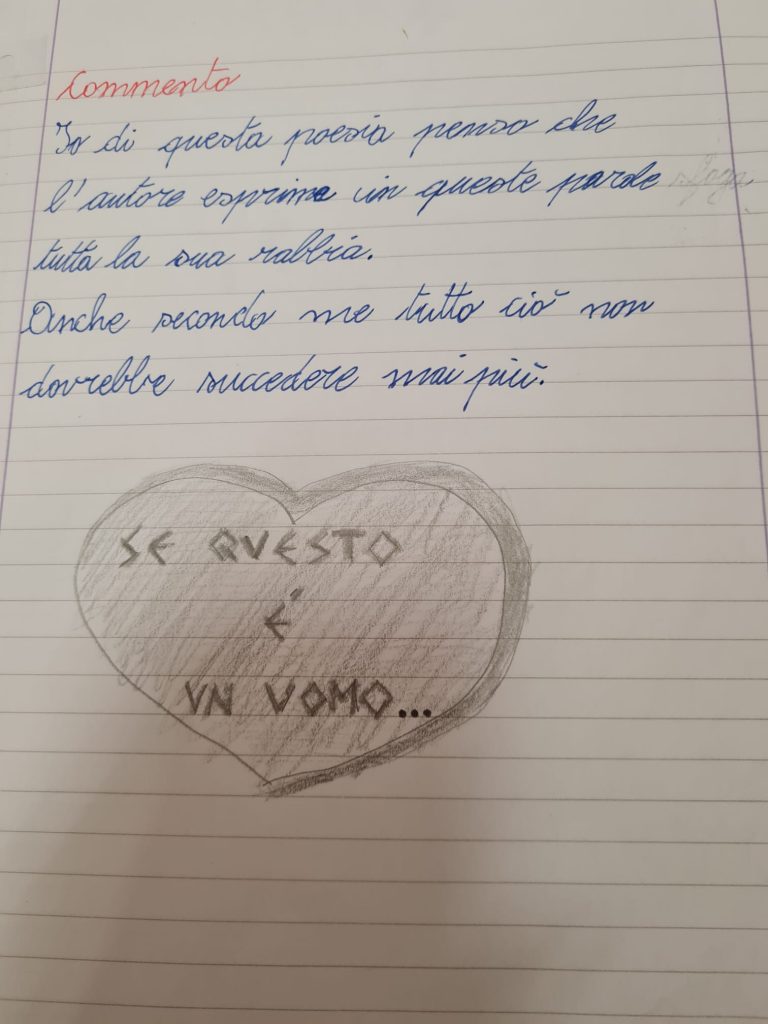 Commento
Io di questa poesia penso che
l'autore esprime in queste parole
tutta la sua rabbia.
Anche secondo me tutto ciò non
dovrebbe succedere mai più.
SE QUESTO
E'
UN UOMO...